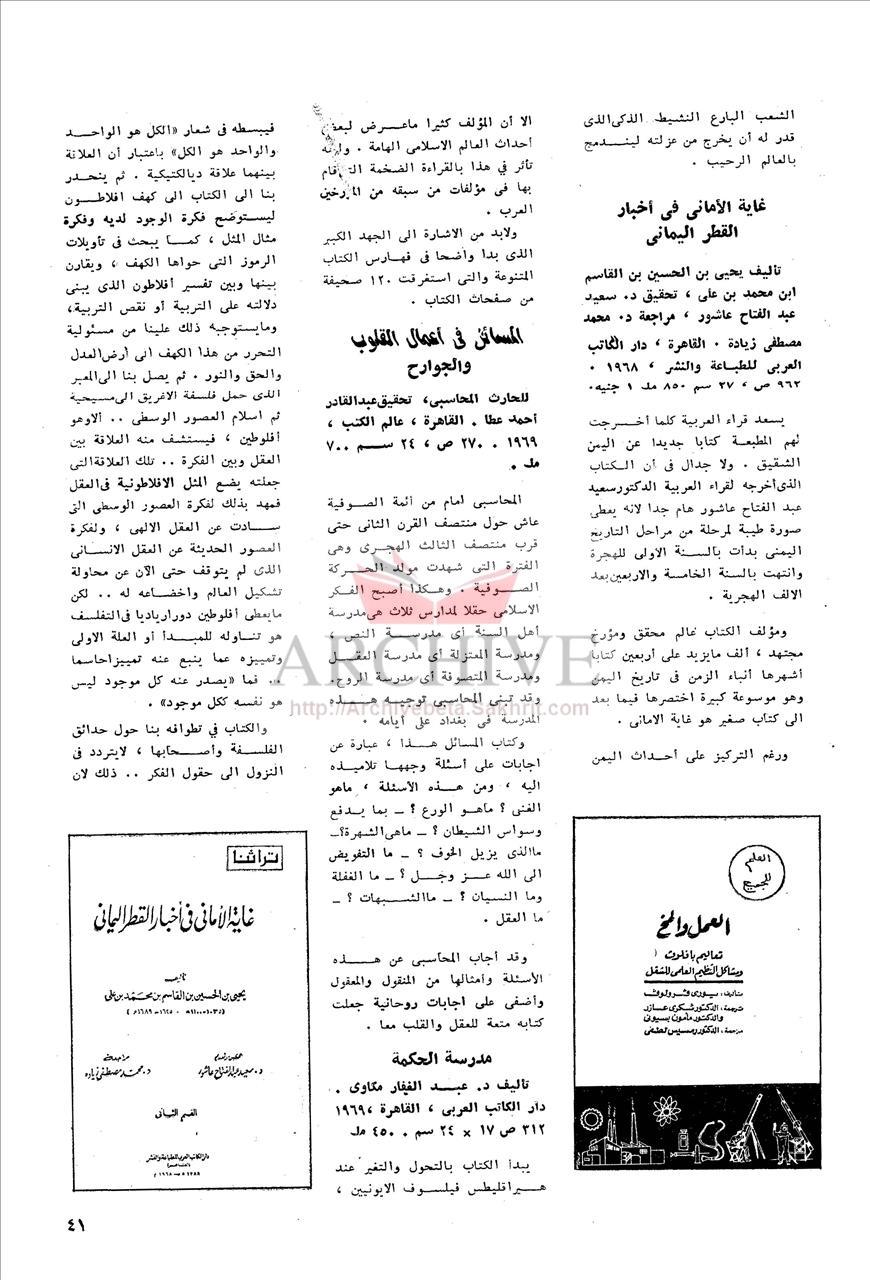 الشعب البارع النشيط الذكى الذى
قدر له أن يخرج من عزلته ليندمج
بالعالم الرحيب .
غاية الأمانى فى أخبار
القطر اليمانى
تأليف يحيى بن الحسين بن القاسم
ابن محمد بن على ، تحقيق د. سعيد
عبد الفتاح عاشور ، مراجعة د. محمد
مصطفى زيادة . القاهرة ، دار الكاتب
العربى للطباعة والنشر ، ١٩٦٨ .
٩٦٢ ص ، ٢٧ سم ٨٥٠ ملـ ١ جنيه .
يسعد قراء العربية كلما أخـرجت
لهم المطبعة كتابا جديدا عن اليمن
الشقيق . ولا جدال فى أن الكتاب
الذى أخرجه لقراء العربية الدكتور سعيد
عبد الفتاح عاشور هام جدا لانه يعطى
صورة طيبة لمرحلة من مراحل التاريخ
اليمنى بدأت بالسنة الاولى للهجرة
وانتهت بالسنة الخامسة والاربعين بعد
الالف الهجرية .
ومؤلف الكتاب عالم محقق ومؤرخ
مجتهد ، ألف مايزيد على أربعين كتابا
أشهرها أنباء الزمن فى تاريخ اليمن
وهو موسوعة كبيرة اختصرها فيما بعد
الى كتاب صغير هو غاية الامانى .
ورغم التركيز على أحداث اليمن
العلم
للجميع
العمل والمخ
تعاليم بافلوف
ومشاكل التنظيم العلمى للشغل
ترجمة ، الدكتور شكرى عازر
والدكتور مأمون بسيونى
مراجعة ، الدكتور رمسيس لطفى
الا أن المؤلف كثيرا ماعـرض لبعض
أحداث العالم الاسلامى الهامة . ولعله
تأثر فى هذا بالقراءة الضخمة التى قام
بها فى مؤلفات من سبقه من المؤرخين
العرب .
ولابد من الاشارة الى الجهد الكبير
الذى بدا واضحا فى فهارس الكتاب
المتنوعة والتى استغرقت ١٢٠ صحيفة
من صفحات الكتاب .
المسائل فى أعمال القلوب
والجوارح
للحارث المحاسبى، تحقيق عبد القادر
أحمد عطا . القاهرة ، عالم الكتب ،
١٩٦٩ . ٢٧٠ ص ، ٢٤ ســم ٧٠٠
ملـ .
المحاسبى امام من أئمة الصـوفية
عاش حول منتصف القرن الثانى حتى
قرب منتصف الثالث الهجـرى وهى
الفترة التى شهدت مولد الحـركة
الصـوفية . وهـكذا أصبح الفكر
الاسلامى حقلا لمدارس ثلاث هى مدرسة
أهل السنة أى مدرسـة النص ،
ومدرسة المعتزلة أى مدرسة العقـل
ومدرسة المتصوفة أى مدرسة الروح.
وقد تبنى المحاسبى توجيه هـذه
المدرسة فى بغداد على أيامه .
http://Archivebeta.Sakhrit.com
ARCHIVE
وكتاب المسائل هـذا ، عبارة عن
اجابات على أسئلة وجهها تلاميذه
اليه ، ومن هـذه الأسئلة ، ماهو
الفنى ؟ ماهـو الورع ؟ ـ بما يـدفع
وسواس الشيطان ؟ ـ ماهى الشهرة؟ـ
ماالذى يزيل الخوف ؟ ـ ما التفويض
الى الله عـز وجـل ؟ ـ ما الغفلة
وما النسيان ؟ ـ ماالشـبهات ؟ ـ
ما العقل .
وقد أجاب المحاسبى عن هـذه
الأسئلة وأمثالها من المنقول والمعقول
وأضفى على اجابات روحانية جعلت
كتابه متعة للعقل والقلب معا .
مدرسة الحكمة
تأليف د. عبـد الغفار مكاوى .
دار الكاتب العربى ، القاهرة ١٩٦٩،
٣١٢ ص ١٧ × ٢٤ سم . ٤٥٠ ملـ
يبدأ الكتاب بالتحول والتغير عند
هيراقليطس فيلسوف الايونيين ،
فيبسطه فى شعار «الكل هو الواحـد
والواحد هو الكل» باعتبار أن العلاقة
بينهما علاقة ديالكتيكية . ثم ينحـدر
بنا الى الكتاب الى كهف افلاطـون
ليستوضح فكرة الوجود لديه وفكرة
مثال المثل ، كمـا يبحث فى تأويلات
الرموز التى حواها الكهف ، ويقارن
بينها وبين تفسير أفلاطون الذى يبنى
دلالته على التربية أو نقص التربية،
ومايستوجبه ذلك علينا من مسئولية
التحرر من هذا الكهف الى أرض العدل
والحق والنور . ثم يصل بنا الى المعبر
الذى حمل فلسفة الاغريق الى مسيحية
ثم اسلام العصور الوسطى .. ألاوهو
أفلوطين ، فيستشف منه العلاقة بين
العقل وبين الفكرة .. تلك العلاقة التى
جعلته يضع المثل الافلاطونية فى العقل
فمهد بذلك لفكرة العصور الوسطى التى
سـادت عن العقل الالهى ، ولفكرة
العصور الحديثة عن العقل الانسـانى
الذى لم يتوقف حتى الآن عن محاولة
تشكيل العالم واخضاعه له .. لكن
مايعطى أفلوطين دوراريادىا فى التفلسف
هو تناوله للمبـدأ أو العلة الاولى
وتمييزه عما ينبع عنه تمييزاحاسما
.. فما «يصدر عنه كل موجود ليس
هو نفسه ككل موجود» .
والكتاب فى تطوافه بنا حول حدائق
الفلسـفة وأصـحابها ، لايتردد فى
النزول الى حقول الفكر .. ذلك لان
تراثنا
غاية الأمانى فى أخبار القطر اليمانى
تأليف
يحيى بن الحسين بن القاسم بن محمد بن على
مراجعة
د. محمد مصطفى زيادة
د. سعيد عبد الفتاح عاشور
القسم الثانى
دار الكاتب العربى للطباعة والنشر
٤١